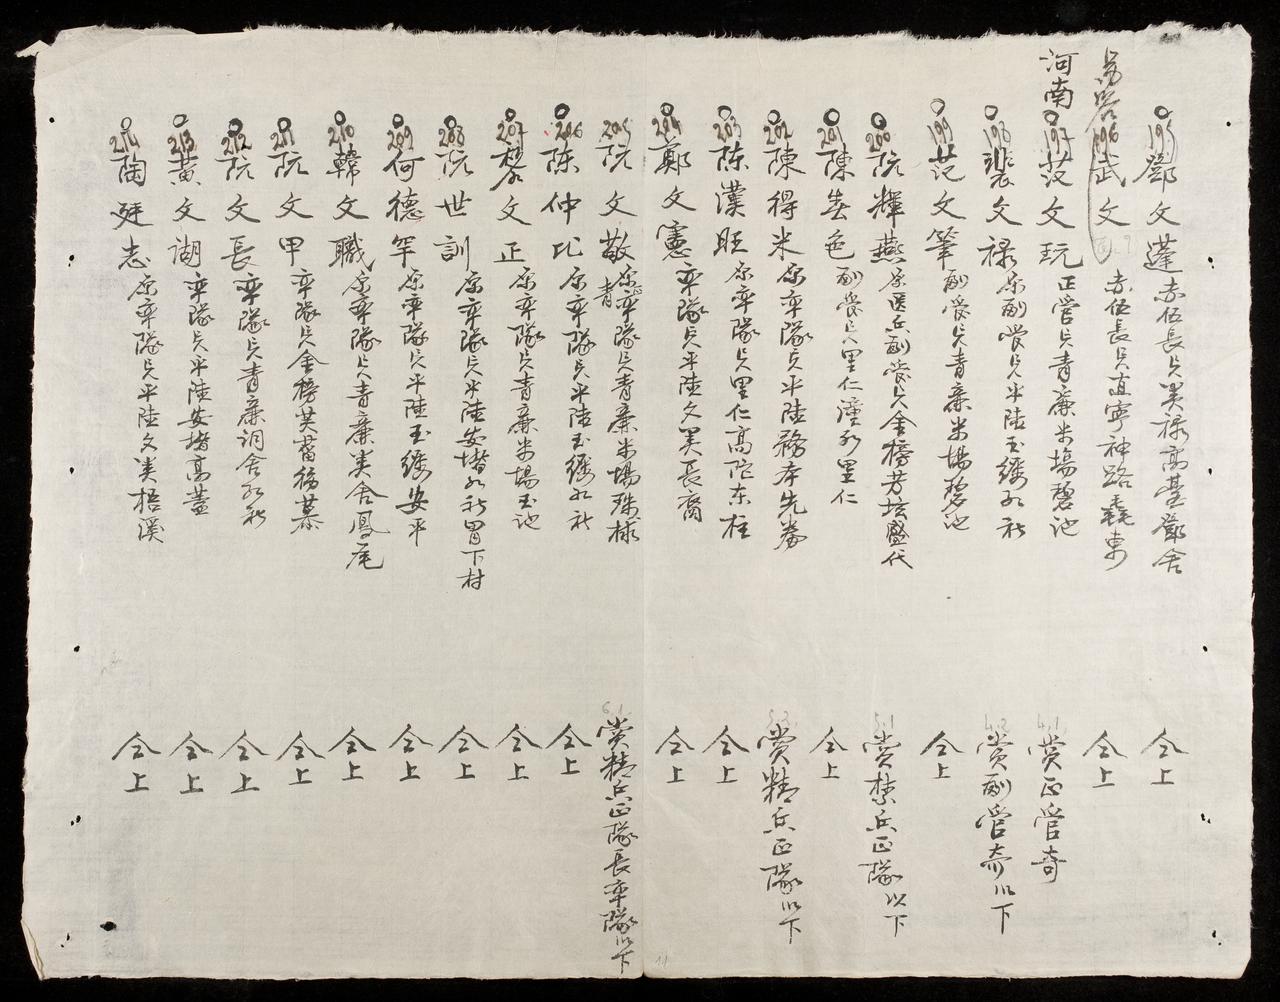 195 鄧文蓬 赤伍長兵美祿高臺鄧舍 仝上
196 武文 赤伍長兵直寧神路 東 仝上
河南 197 范文玩 正管兵青廉米場碧池 4.1 賞正管奇
198 裴文祿 原副管兵平陸玉縷 社 4.2 賞副管奇以下
199 范文筆 副管兵青廉米場碧池 仝上
200 阮輝燕 原医兵副管兵金榜芳坛盛代 5.1 賞禁兵正隊以下
201 陳春色 副管兵里仁潼 里仁 仝上
202 陳得米 原率隊兵平陸務本先 5.2 賞精兵正隊以下
203 陈漢旺 原率隊兵里仁高陀东柱 仝上
204 鄭文憲 率隊兵平陸文美長裔 仝上
205 阮文敬 原率隊兵青廉米場珠 6.1 賞精兵正隊長率隊以下
206 陈仲比 原率隊兵平陸玉縷 社 仝上
207 黎文正 原率隊兵青廉米場玉池 仝上
208 阮世訓 原率隊兵平陸安堵 社胃下村 仝上
209 何德罕 原率隊兵平陸玉縷安平 仝上
210 韓文職 原率隊兵青廉美舍鳳尾 仝上
211 阮文甲 率隊兵金榜芙 仝上
212 阮文長 率隊兵青廉洞舍 社 仝上
213 黃文湖 率隊兵平陸安堵高蓋 仝上
214 陶廷志 原率隊兵平陸文美梧溪 仝上